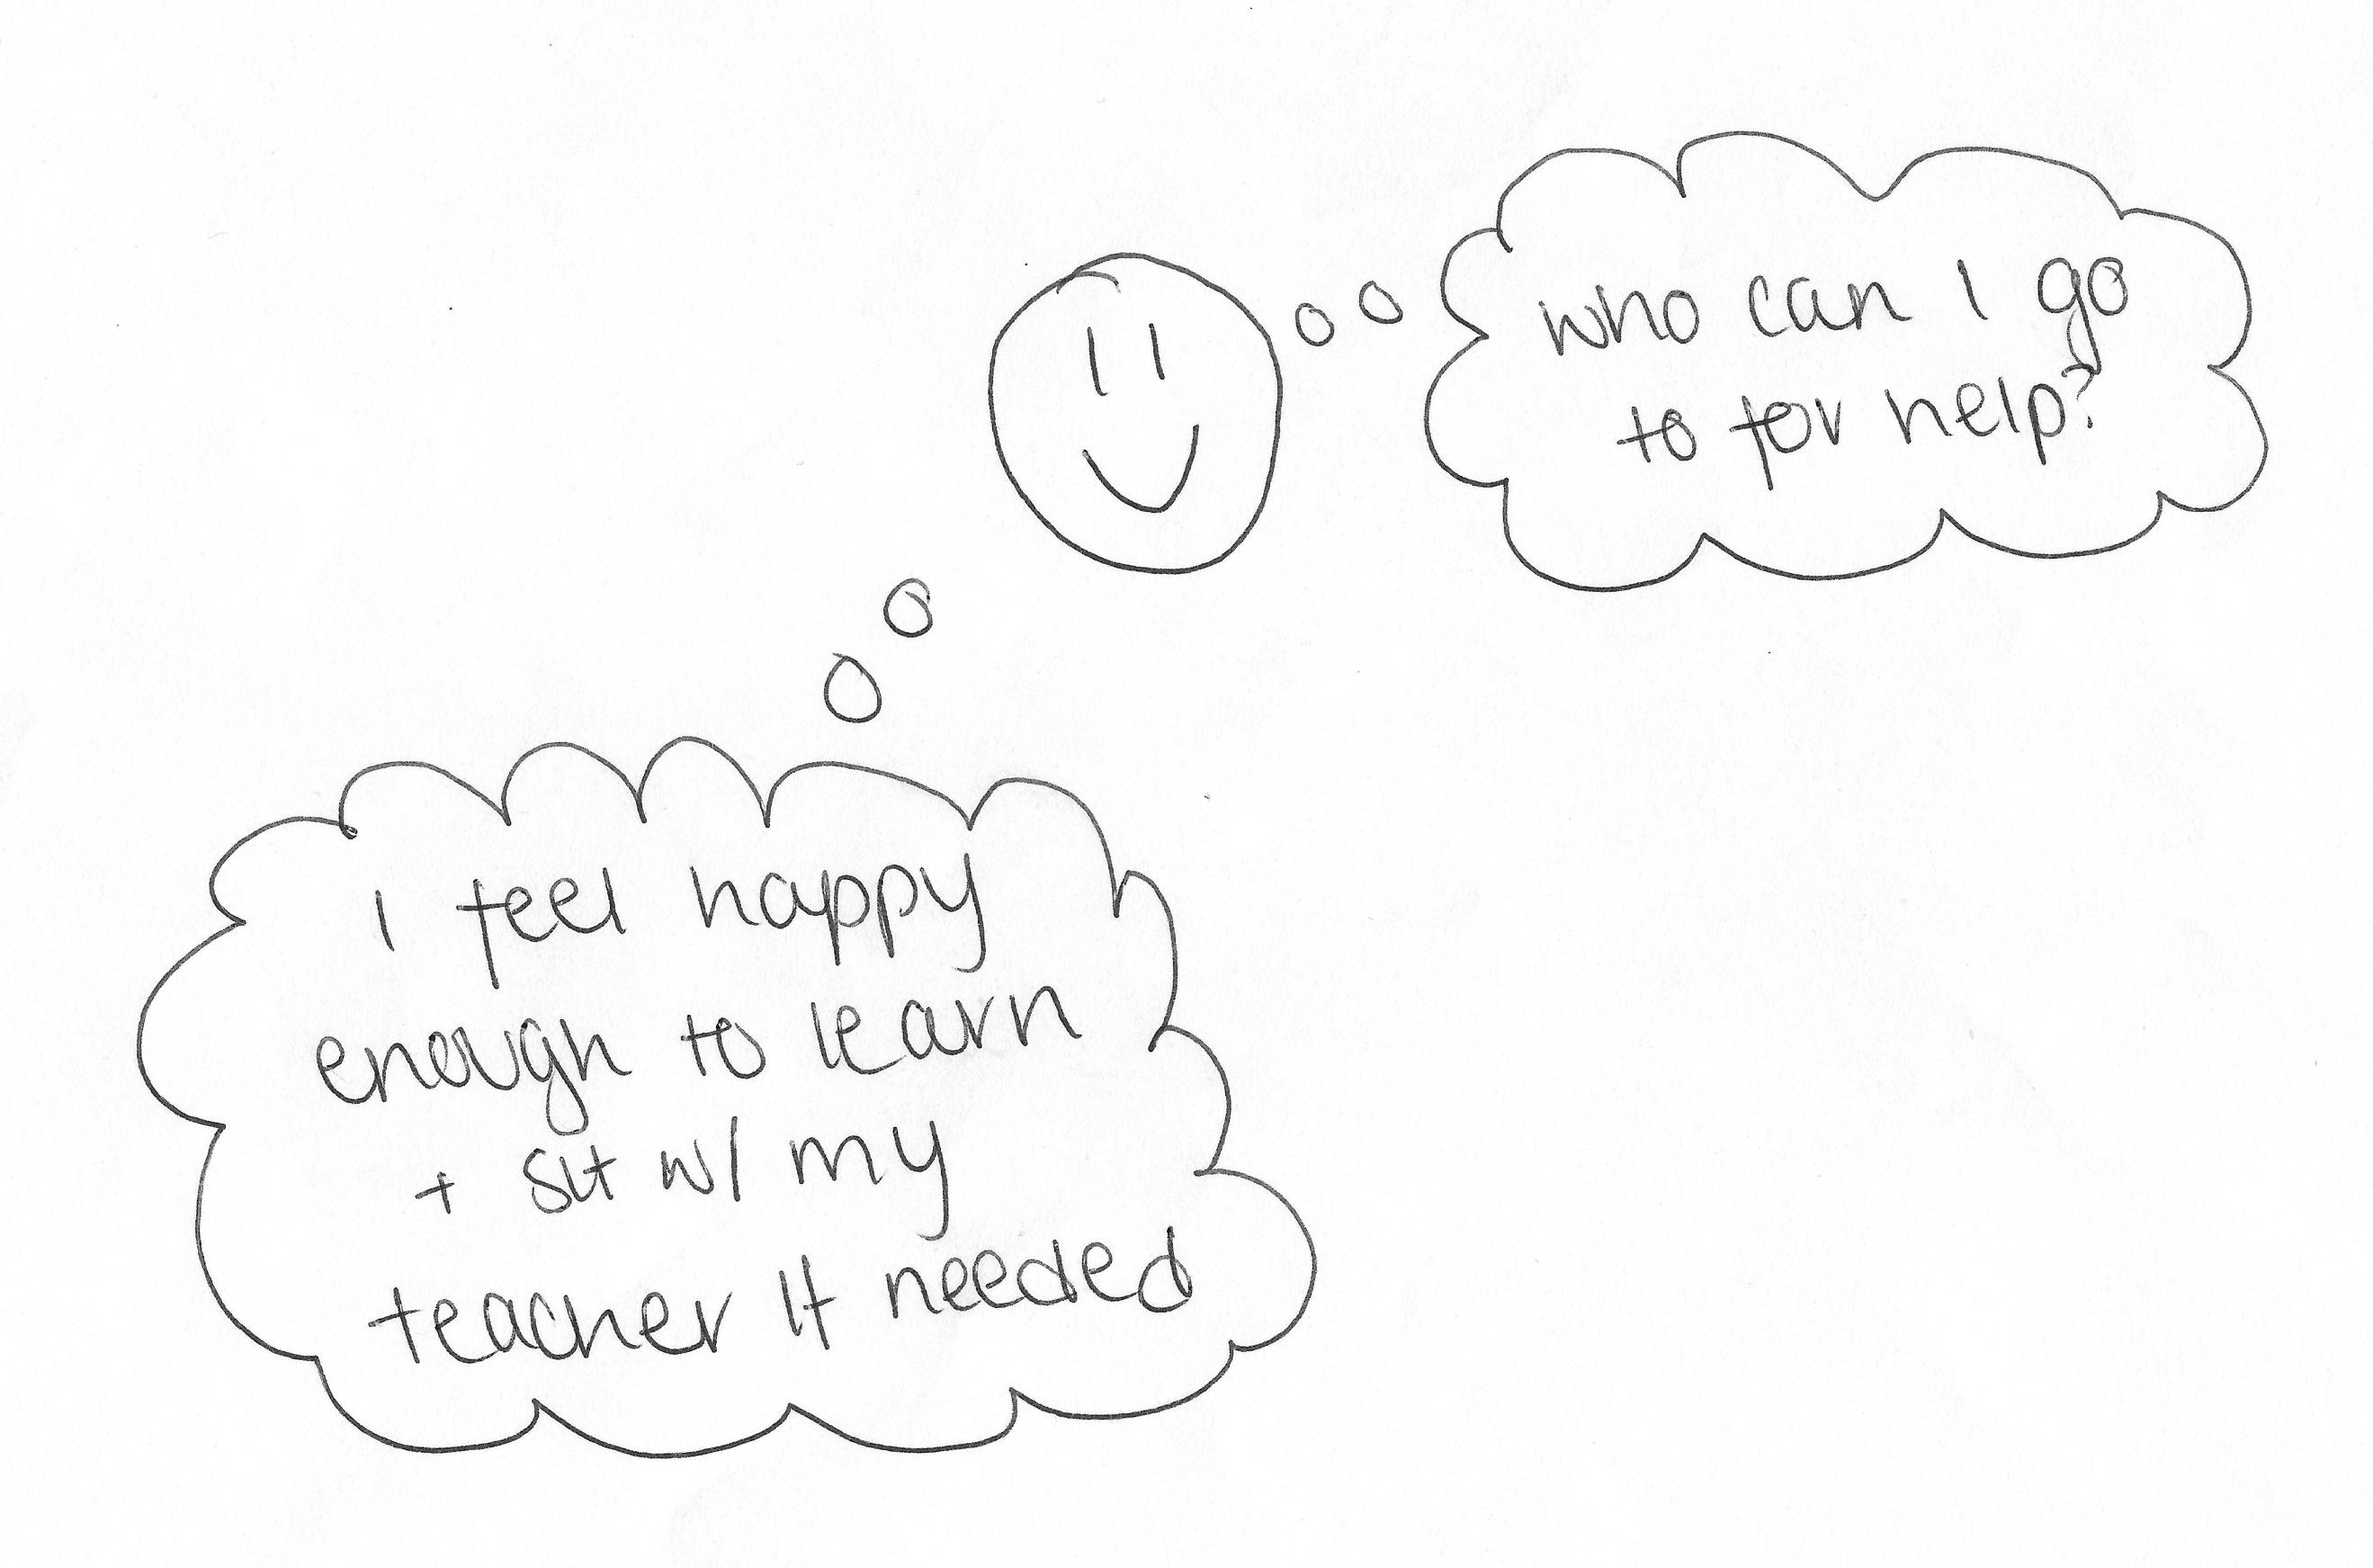 who can I go
to for help?
I feel happy
enough to learn
+ sit w/ my
teacher if needed